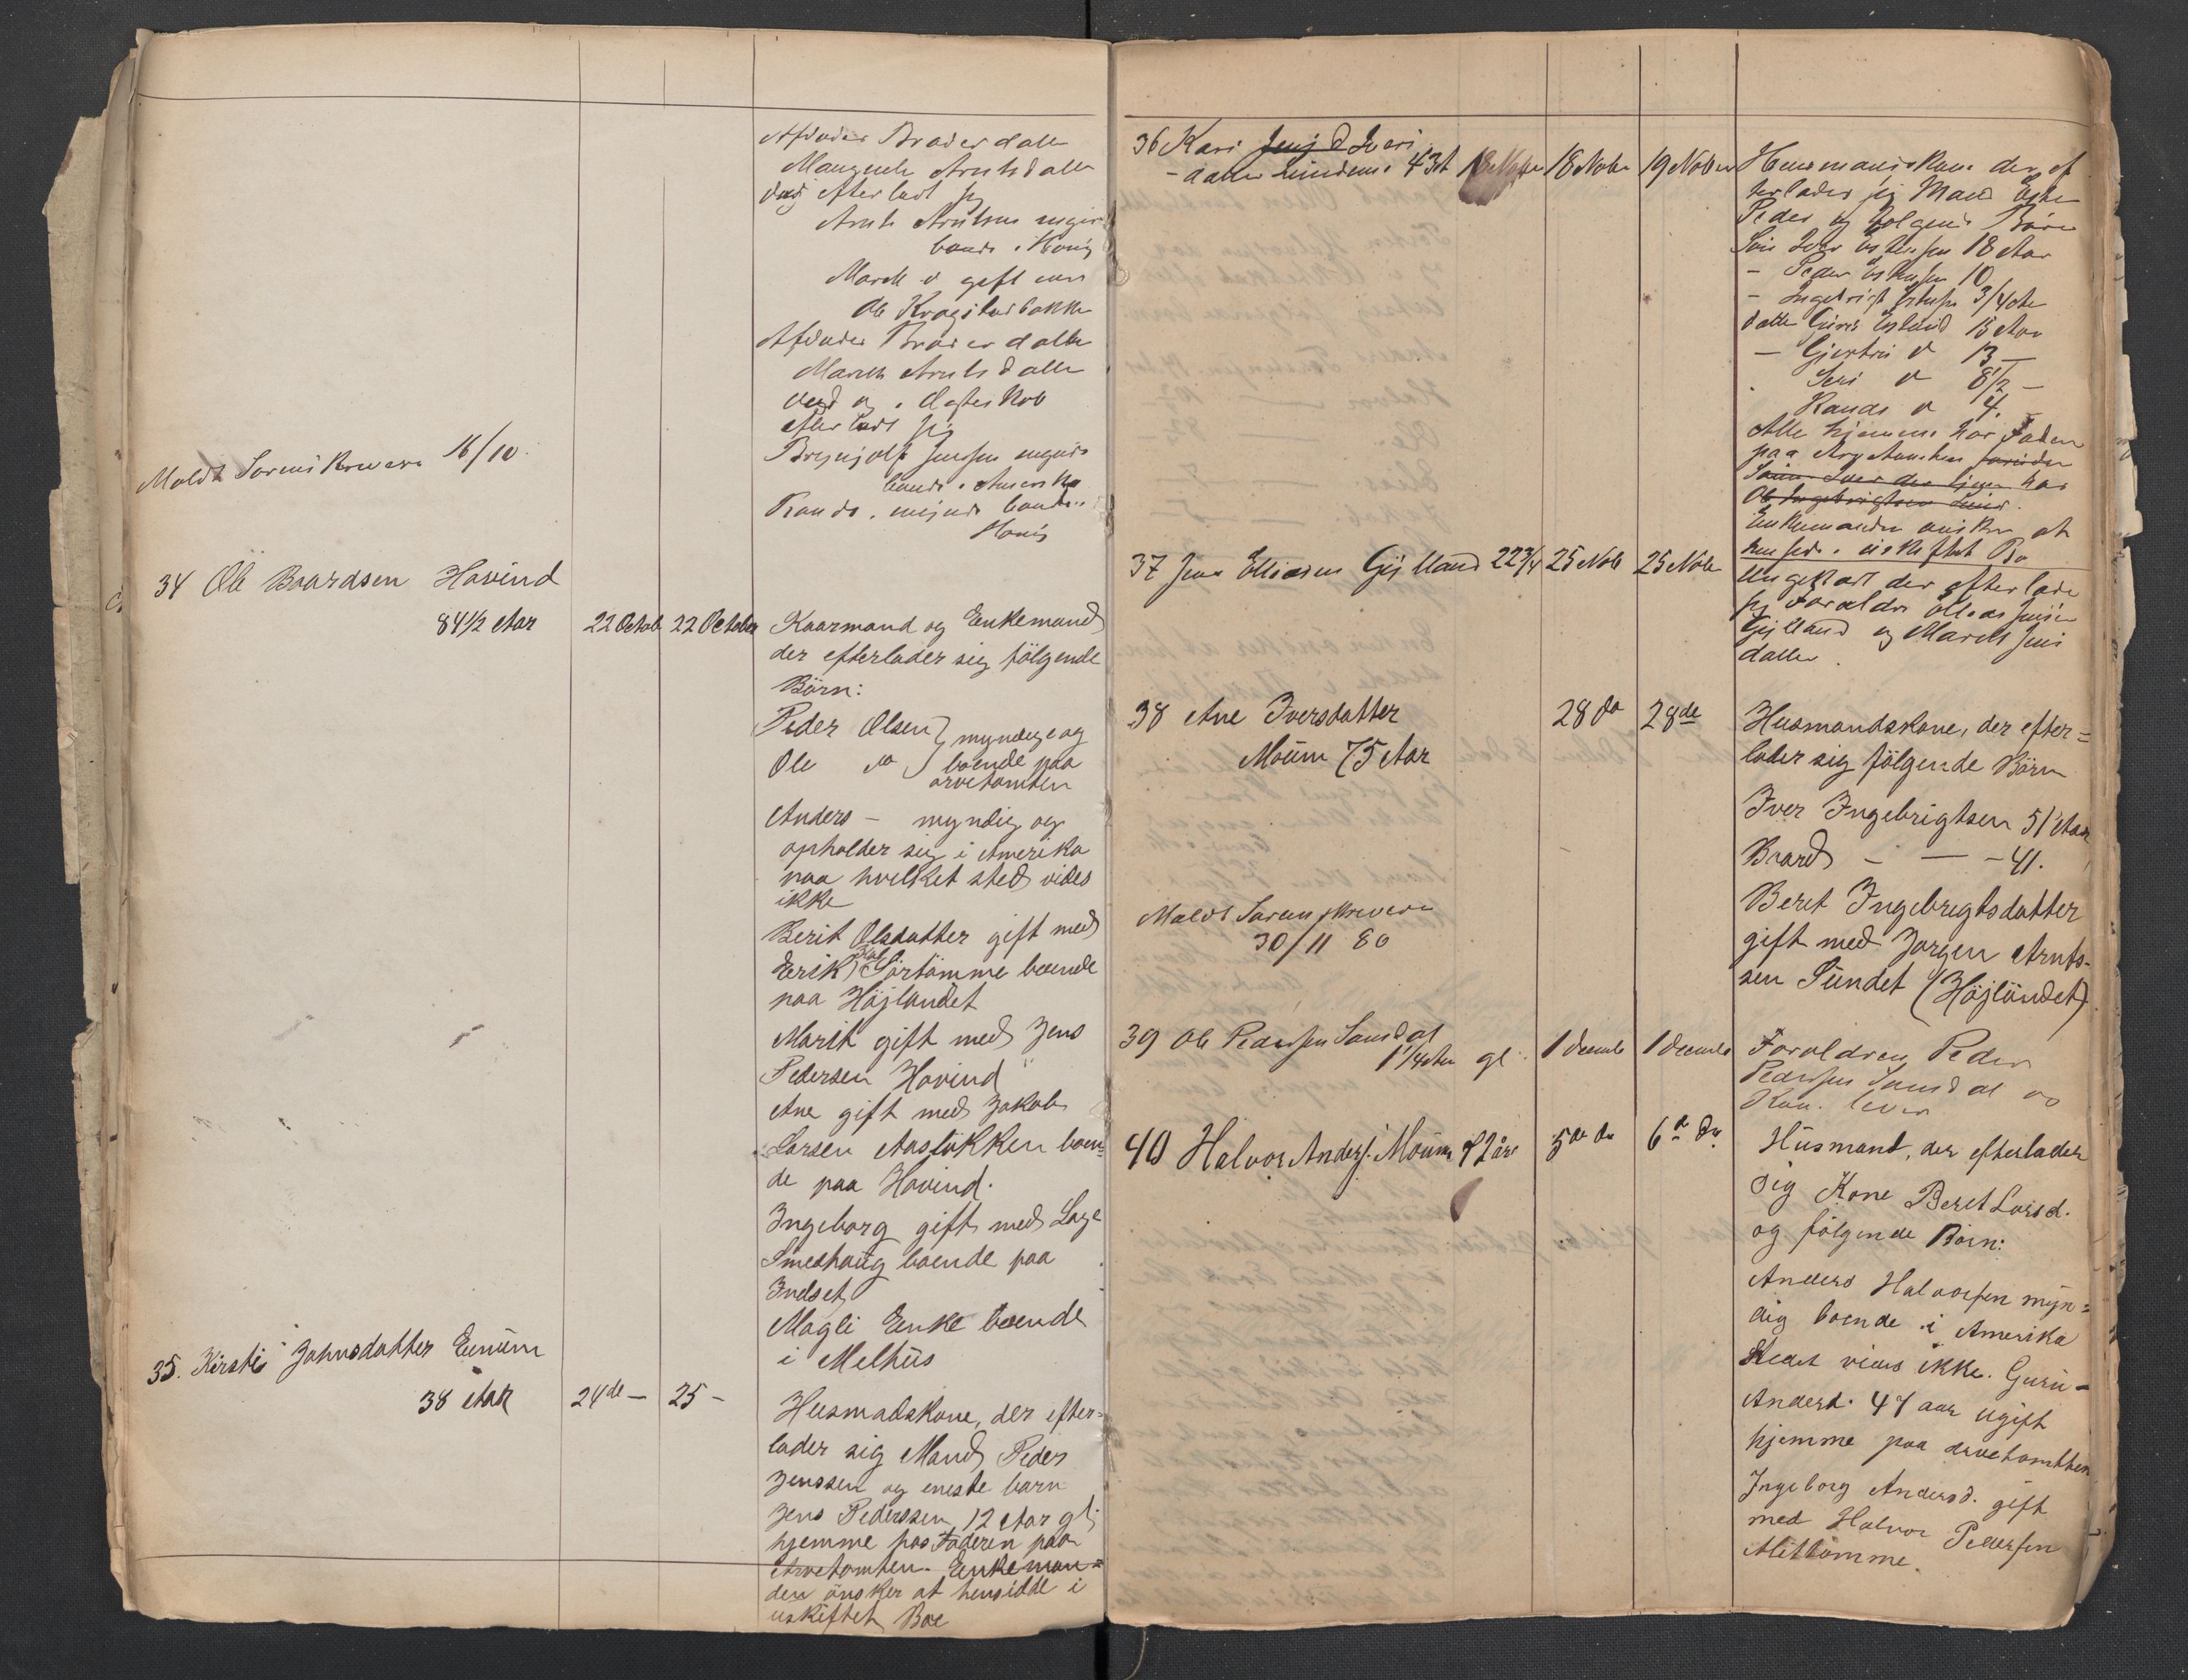 Afdøde Broder datter
Magnele Arntsdatter
død efterladt sig
Arnt Arntsen
boende i
Marit d gift med
Ole Kragstadbakke
Afdøde Broder datter
Marit Arntsdatter
død og i Ægteskab
efterladt sig
Brynjolf Jensen
boende i Amerika
Randi boende
Meldt Sorenskriveren 16/10
34 Ole Baardsen Hovind
84 1/2 Aar
22 Octob
22 October
Kaarmand og Enkemand
der efterlader sig följgende
Börn:
Peder Olsen } myndige og
Ole do } boende paa
arvetomten
Anders - myndig og
opholder sig i Amerika
paa hvilket sted vides
ikke
Berit Olsdatter gift med
Erik Sörtömme boende
paa Höjlandet
Marit gift med Jens
Pedersen Hovind
Ane gift med Jakob
Larsen Aaslökken boen=
de paa Hovind.
Ingeborg gift med Lage
Smedhaug boende paa
Indset
Magli Enke boende
i Melhus
35. Kirsti Johnsdatter Enum
38 Aar
24de —
25 -
Husmadskone, der efter=
lader sig Mand Peder
Jenssen og eneste barn
Jens Pederssen, 12 Aar gl;
hjemme hos Faderen paa
Arvetomten. Enkeman=
den önsker at hensidde i
uskiftet Boe
36 Kari Iveri
- datter 43
18 Novbr
18 Novbr
19 Novbr
Husmandskone der ef
terlader sig Mand Esten
Peder og følgende Børn
Søn Iver Estensen 18 Aar
- Peder Estensen 10
- Ingebrigt Estensen 3/4 Aar
datter Guri Estensd 15 Aar
— Gjertru d 13 —
Seri d 8 1/2 -
Randi d 4.
Alle hjemme hos Faderen
paa Arvetomten
Sønn Iver der hjemme hos
Ole Ingebrigtsen
Enkemanden ønsker at
hensidde i uskiftet Bo
37 Jens Eliasen Gylland 22 3/4
25 Novb
25 Novbr
Ungekarl der efterlader
sig Forældre Elias Jensen
Gylland og Marit Jens
datter.
38 Ane Iversdatter
Moum 75 Aar
28 do
28de
Husmandskone, der efter=
lader sig fölgende Börn
Iver Ingebrigtsen 51 Aar
Baard - — - 41.
Beret Ingebrigtsdatter
gift med Jorgen Arnts-
sen Sundet (Höjlandet)
Meldt Sorenskriveren
30/11 80
39 Ole Pedersen Samsdal
1 1/4 Aar gl.
1 Decembr
1 Decembr
Forældren Peder
Pedersen Samsdal og
Kone lever
40 Halvor Anders. Moum
5de do
6te do
Husmand, der efterlader
sig Kone Beret Larsd.
og følgende Børn:
Anders Halvorsen myn=
dig boende i Amerika
Stedet vides ikke. Guru -
Andersd. 47 aar ugift
hjemme paa arvetomthen
Ingeborg Andersd. gift
med Halvor Pedersen
Midttömme.